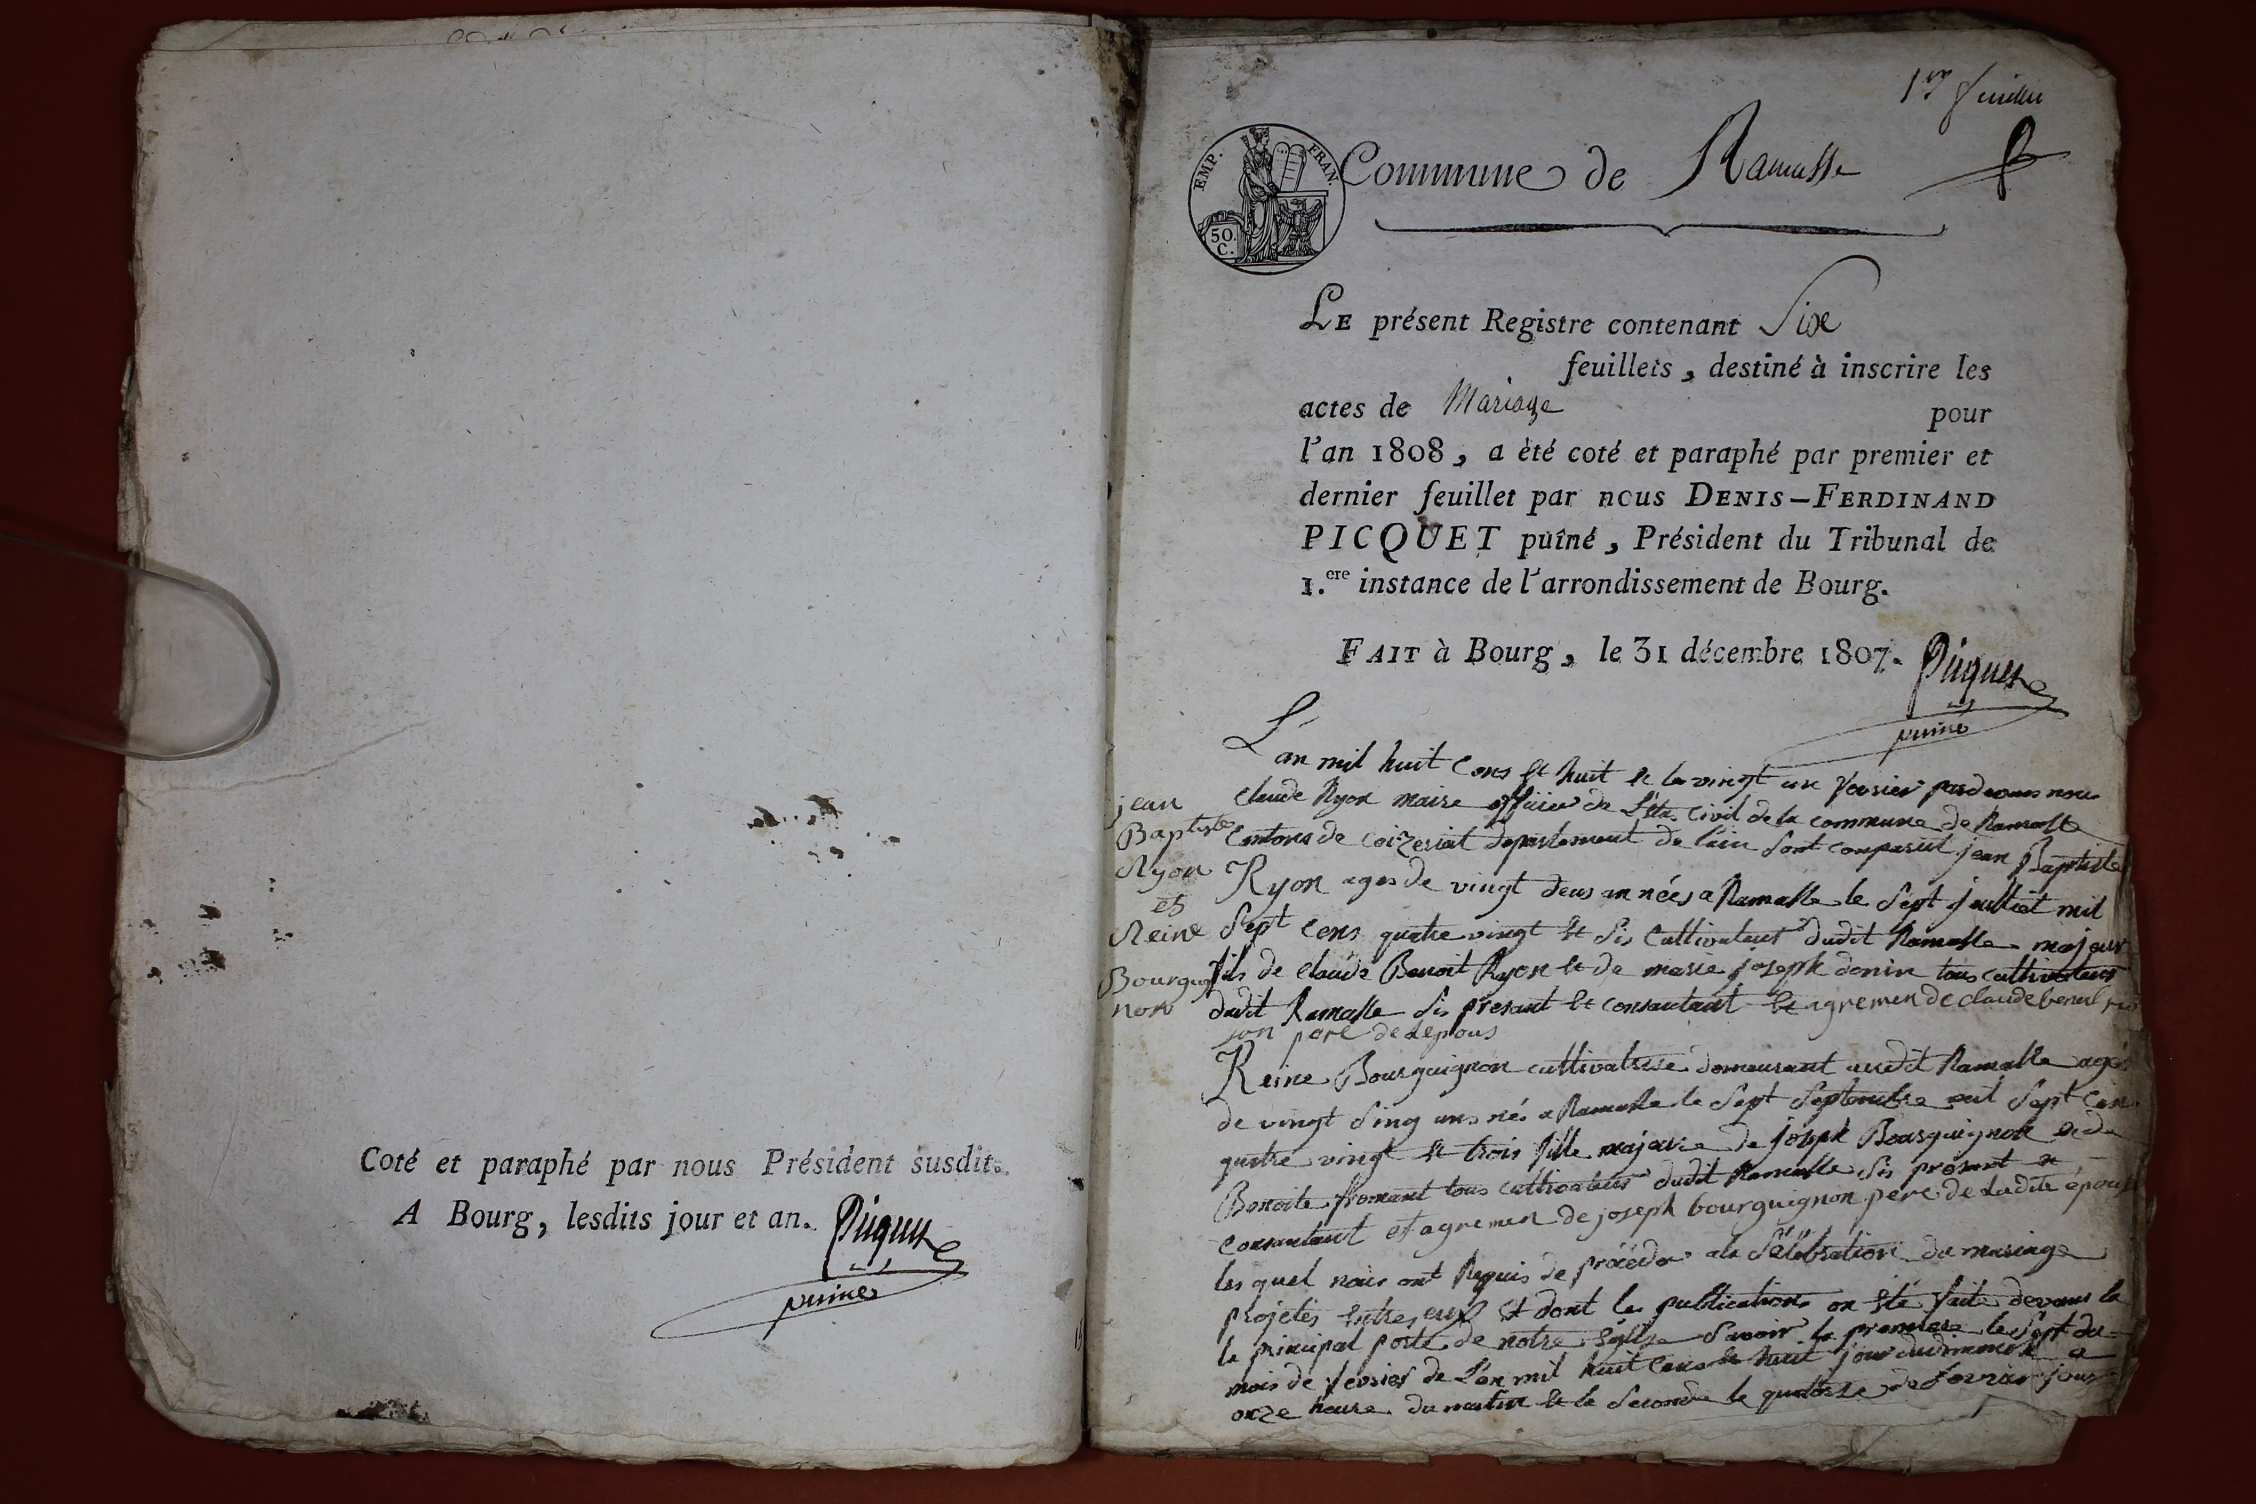 Coté et paraphé par nous Président susdit.
A Bourg, lesdits jour et an. Picquet
puiné
1er feuillet
EMP. FRAN.
50.
C.
Commune de Ramasse
LE présent Registre contenant Six
feuillets, destiné à inscrire les
actes de Mariage pour
l'an 1808, a èté coté et paraphé par premier et
dernier feuillet par nous DENIS-FERDINAND
PICQUET puîné, Président du Tribunal de
1.ere instance de l'arrondissement de Bourg.
FAIT à Bourg, le 31 décembre 1807. Picquet
puiné
jean
Baptiste
Ryon
et
Reine
Bourguig
non
L'an mil huit cens et huit et le vingt un fevrier pardevans nous
claude Ryon maire officier de L'éta civil de la commune de Ramasse
Cantons de ceizeriat departement de l'ain sont comparut jean Baptiste
Ryon ages de vingt deus an nées a Ramasse le sept juilliet mil
sept cens quatre vingt et sis cultivateur dudit Ramasse majeur
fils de claude Benoit Ryon et de marie joseph donin tous cultivateurs
dudit Ramasse sis présant et consantant et agremen de claude benoit
son pere de lepous
Reine Bourguignon cultivatrise demeurant audit Ramasse agé
de vingt sinq ans né a Ramasse le sept septembre mil sept cen
quatre vingt et trois fille majeure de joseph Bourguignon et de
Benoite fromant tous cultivateur dudit Ramasse sis présant et
consantant et agremen de joseph bourguignon pere de ladite épouse
les quel nous ont Requis de proceder a la sélébration du mariage
projetés entres eux et dont les publications on été faite devans la
la principal porte de notre église savoir la premiere le sept du
mois de fevrier de l'an mil huit cens et huit jour du dimanche a
onze heure du matin et la seconde le quatorze de fevrier jour